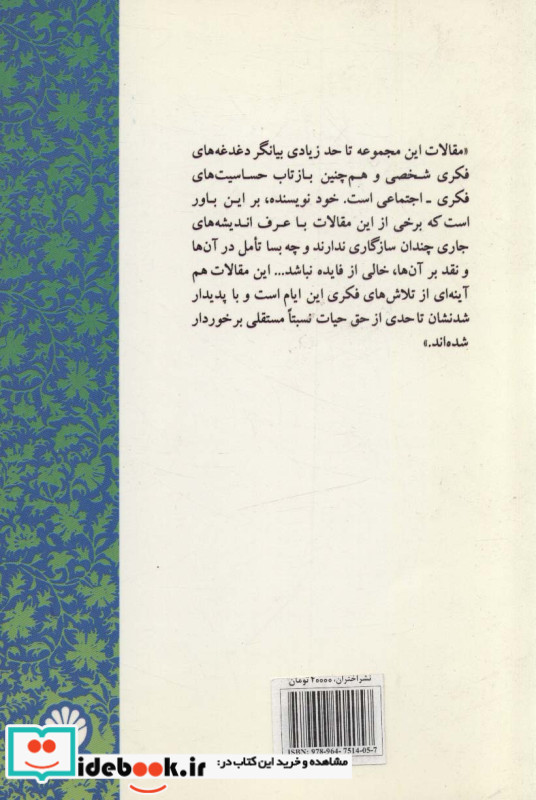 «مقالات این مجموعه تا حد زیادی بیانگر دغدغه‌های
فکری شخصی و هم‌چنین بازتاب حساسیت‌های
فکری - اجتماعی است. خود نویسنده، بر این باور
است که برخی از این مقالات با عرف اندیشه‌های
جاری چندان سازگاری ندارند و چه بسا تأمل در آن‌ها
و نقد بر آن‌ها، خالی از فایده نباشد... این مقالات هم
آینه‌ای از تلاش‌های فکری این ایام است و با پدیدار
شدنشان تا حدی از حق حیات نسبتاً مستقلی برخوردار
شده‌اند.»
نشر اختران، ۲۰۰۰۰ تومان
ISBN: 978-964-7514-05-7
مشاهده و خرید این کتاب در:
idebook.ir